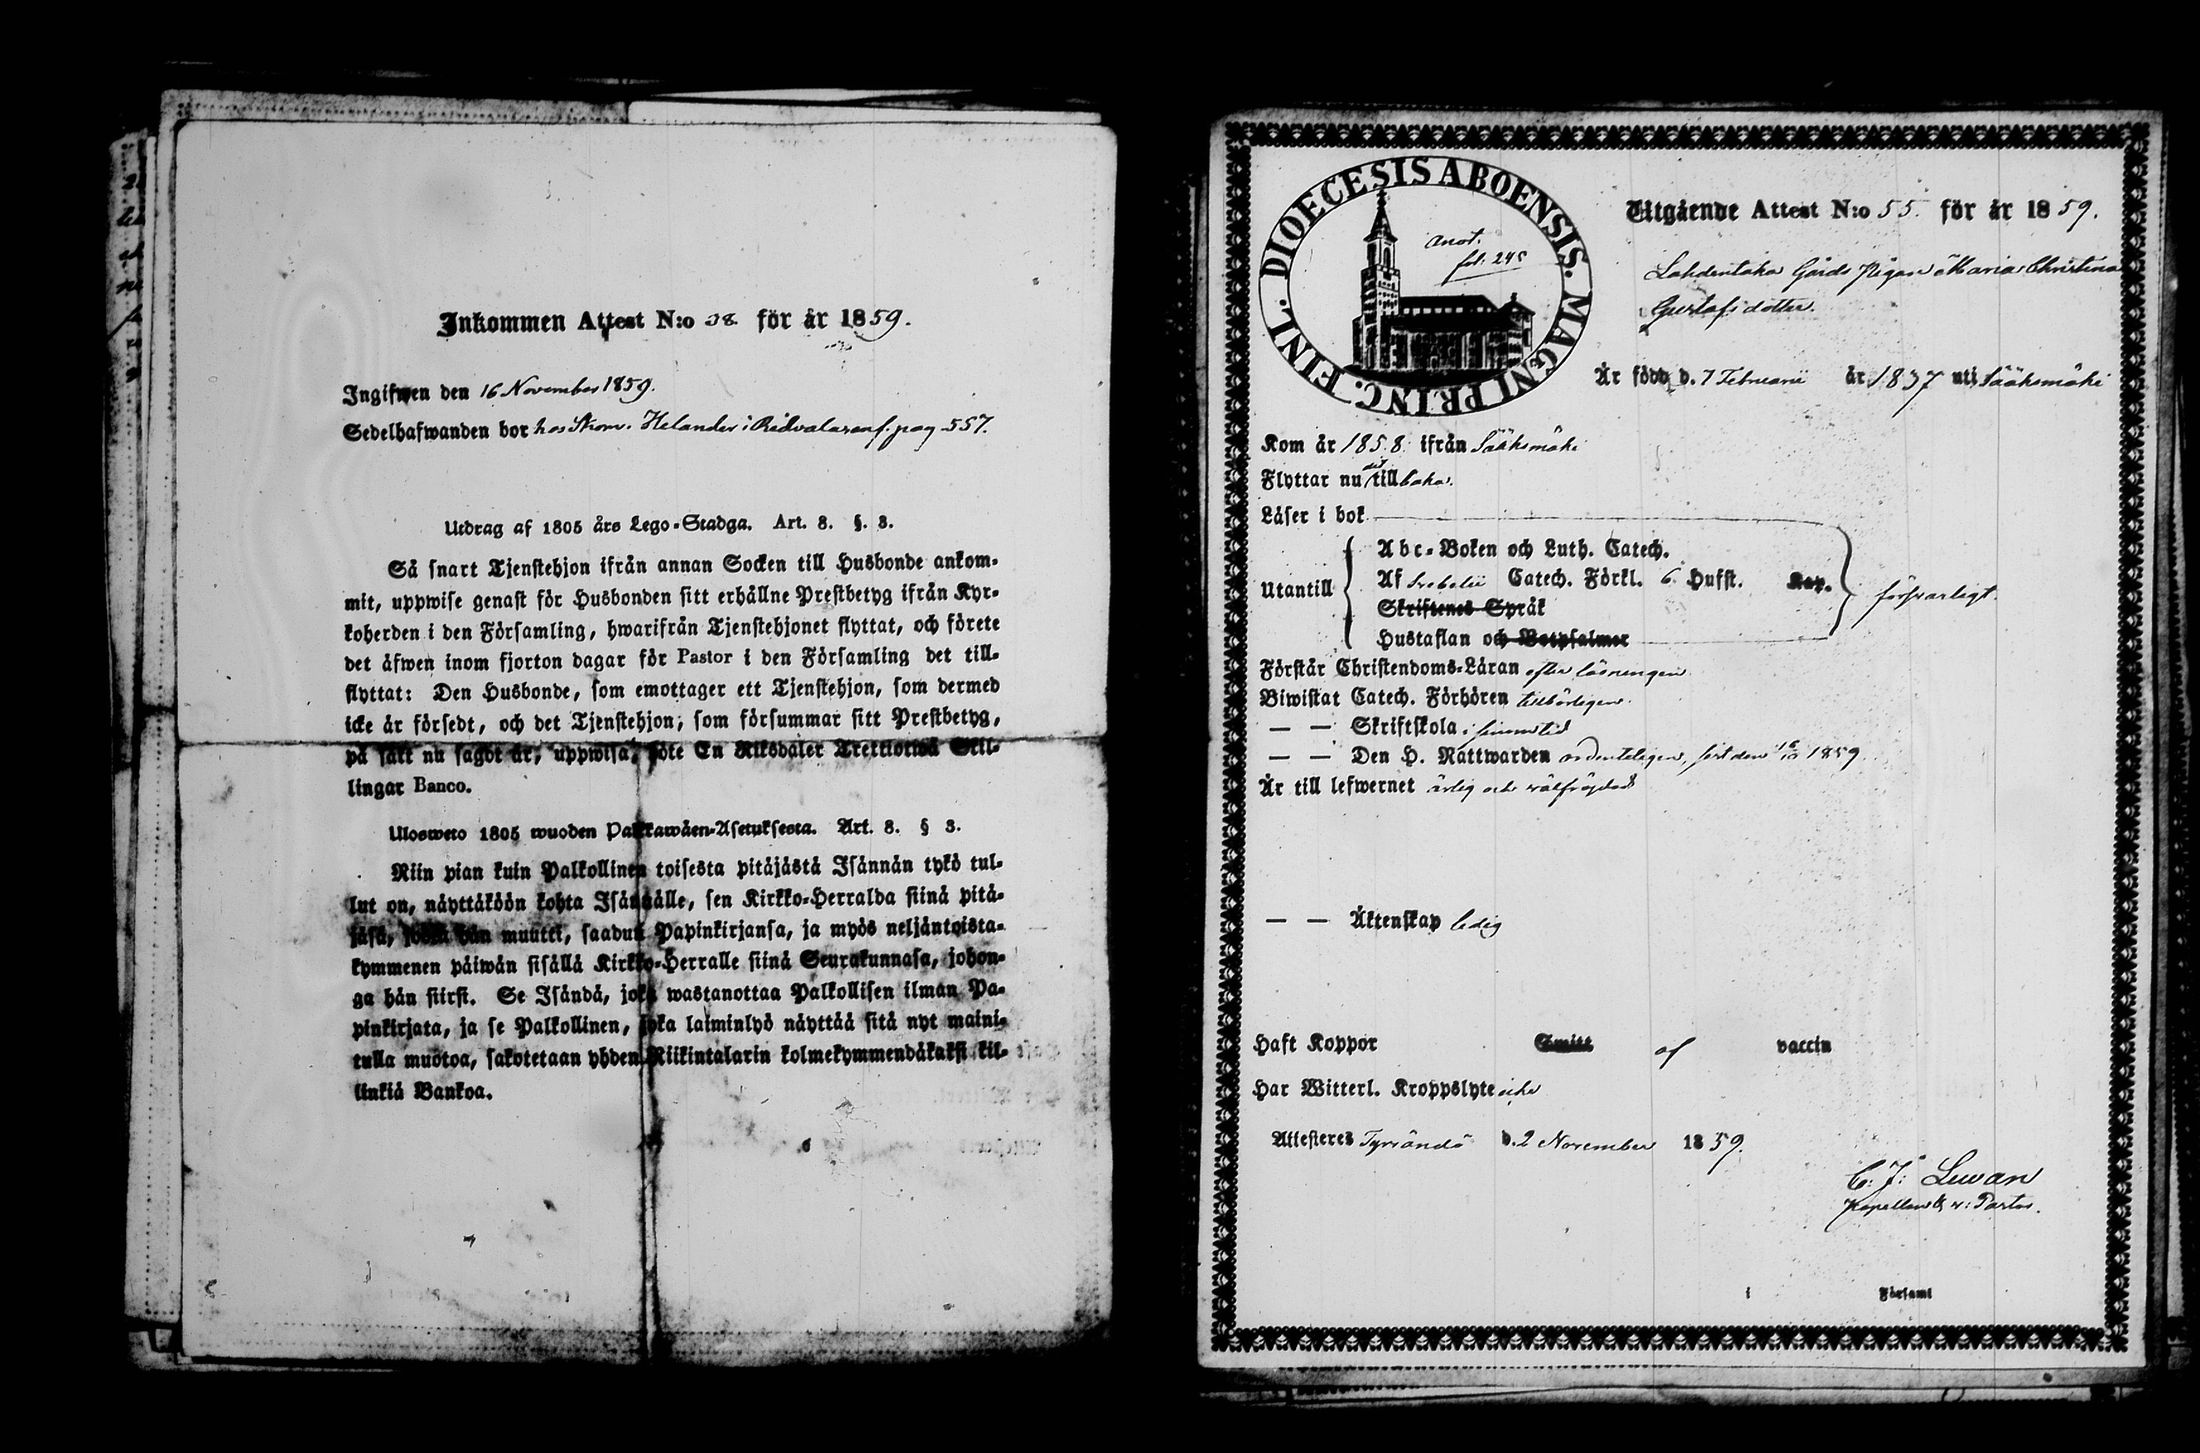 Inkommen Attest N:o 38. för år 1859.
Ingifwen den 16 November 1859.
Sedelhafwanden bor hos Skom. Helander i Ridvala ranf. pag 557.
Utdrag af 1805 års Lego-Stadga. Art. 8. §. 3.
Så snart Tjenstehjon ifrån annan Socken till Husbonde ankom-
mit, uppwise genast för Husbonden sitt erhållne Prestbetyg ifrån Kyr-
koherden i den Församling, hwarifrån Tjenstehjonet flyttat, och förete
det äfwen inom fjorton dagar för Pastor i den Församling det till-
flyttat: Den Husbonde, som emottager ett Tjenstehjon, som dermed
icke är försedt, och det Tjenstehjon, som försummar sitt Prestbetyg,
på sätt nu sagdt är, uppwisa, böte En Riksdaler Trettiotwå Skil-
lingar Banco.
Ulosweto 1805 wuoden Palkkawäen-Asetuksesta. Art. 8. § 3.
Niin pian kuin Palkollinen toisesta pitäjästä Isännän tykö tul-
lut on, näyttäköön kohta Isännälle, sen Kirkko-Herralda siinä pitä-
jäsä, josta hän muutti, saadun Papinkirjansa, ja myös neljäntoista-
kymmenen päiwän sisällä Kirkko-Herralle siinä Seurakunnasa, johon-
ga hän siirsi. Se Isändä, joka wastanottaa Palkollisen ilman Pa-
pinkirjata, ja se Palkollinen, joka laiminlyö näyttää sitä nyt maini-
tulla muotoa, sakotetaan yhden Riikintalarin kolmekymmendäkaksi kil-
linkiä Bankoa.
DIOECESIS ABOENSIS. MAGNI PRINC. FINL.
Anot.
fol. 245
Utgående Attest N:o 55. för år 1859.
Lahdentaka Gårds Pigan Maria Christina
Gustafsdotter.
Är född d. 7 Februarii år 1837 uti Sääksmäki
Kom år 1858 ifrån Sääksmäki
Flyttar nu dit tillbaka.
Läser i bok
Utantill
Abc-Boken och Luth. Catech.
Af Svebelii Catech. Förkl. 6 Hufst. Kap.
Skriftenes Språk
Hustaflan och Botpsalmer
försvarligt.
Förstår Christendoms-Läran efter läsningen
Biwistat Catech. Förhören tillbörligen.
— — Skriftskola i sinom tid
— — Den H. Nattwarden ordenteligen, sist den 16/10 1859.
Är till lefwernet ärlig och wälfrägdad
— — Äktenskap ledig
Haft Koppor Smitt af vaccin
Har Witterl. Kroppslyte icke
Attesteres Tyrvändö d. 2 November 1859.
C. J. Lewan
Kapellan & v: Pastor.
i Församl